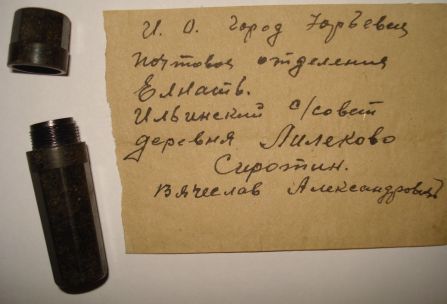 И. О. город Юрьевец
почтовое отделения
Елнать.
Ильинский с/совет
деревня Лилеково
Сиротин.
Вячеслав Александровичъ